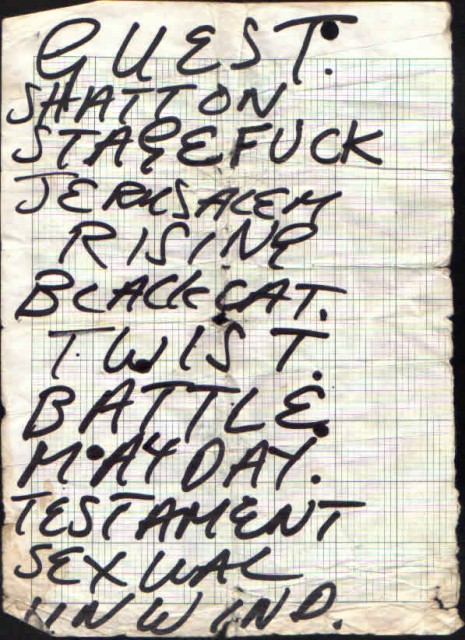 GUEST.
SHATTON
STAGEFUCK
JERUSALEM
RISING
BLACKCAT.
T.WIST.
BATTLE.
M.AYDAY.
TESTAMENT
SEXUAL
UNWIND.